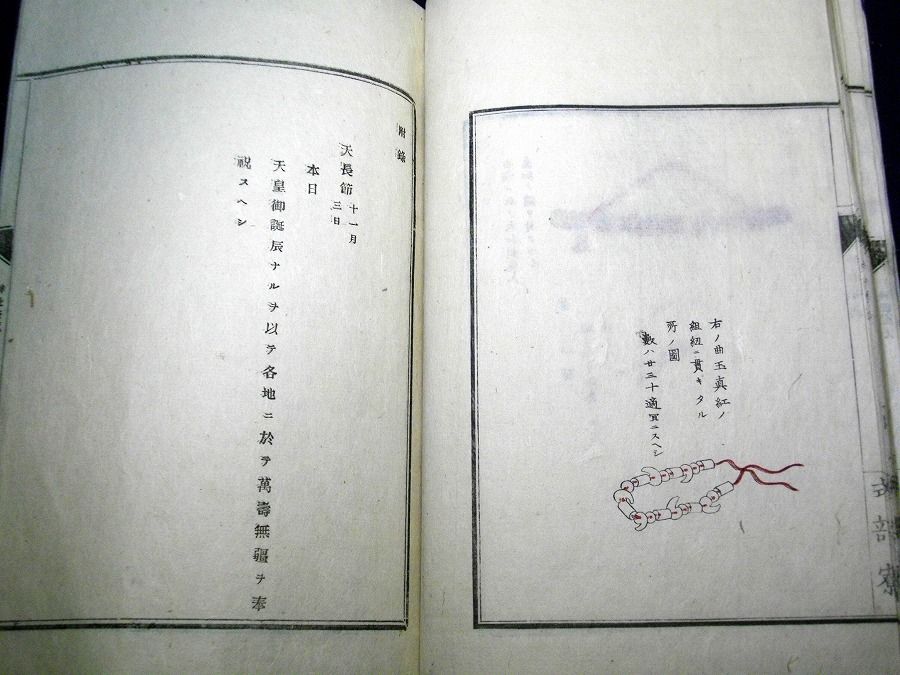 右ノ曲玉真紅ノ
組紐ニ貫キタル
所ノ圖
數ハ廿三十適宜ニスヘシ
式部寮
附錄
天長節 十一月三日
本日
天皇御誕辰ナルヲ以テ各地ニ於テ萬壽無疆ヲ奉
祝スヘシ